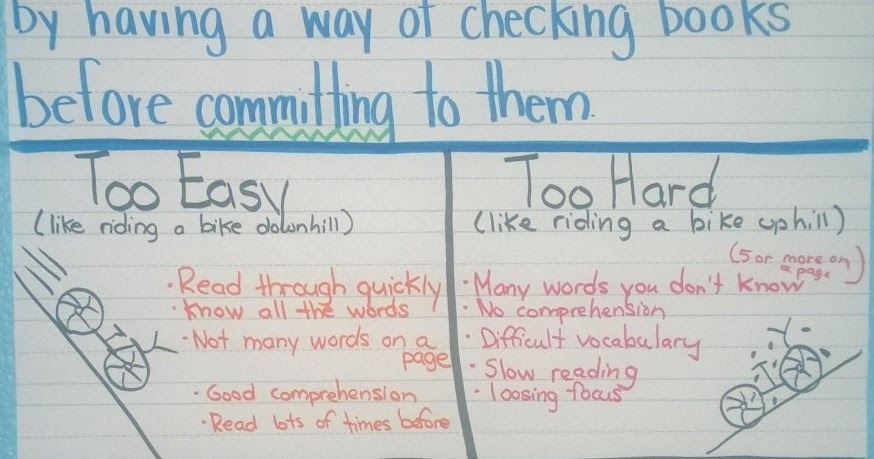 by having a way of checking books
before committing to them.
Too Easy
(like riding a bike downhill)
• Read through quickly
• Know all the words
• Not many words on a
page
• Good comprehension
• Read lots of times before
Too Hard
(like riding a bike uphill)
(5 or more on
a page)
• Many words you don't know
• No comprehension
• Difficult vocabulary
• Slow reading
• loosing focus